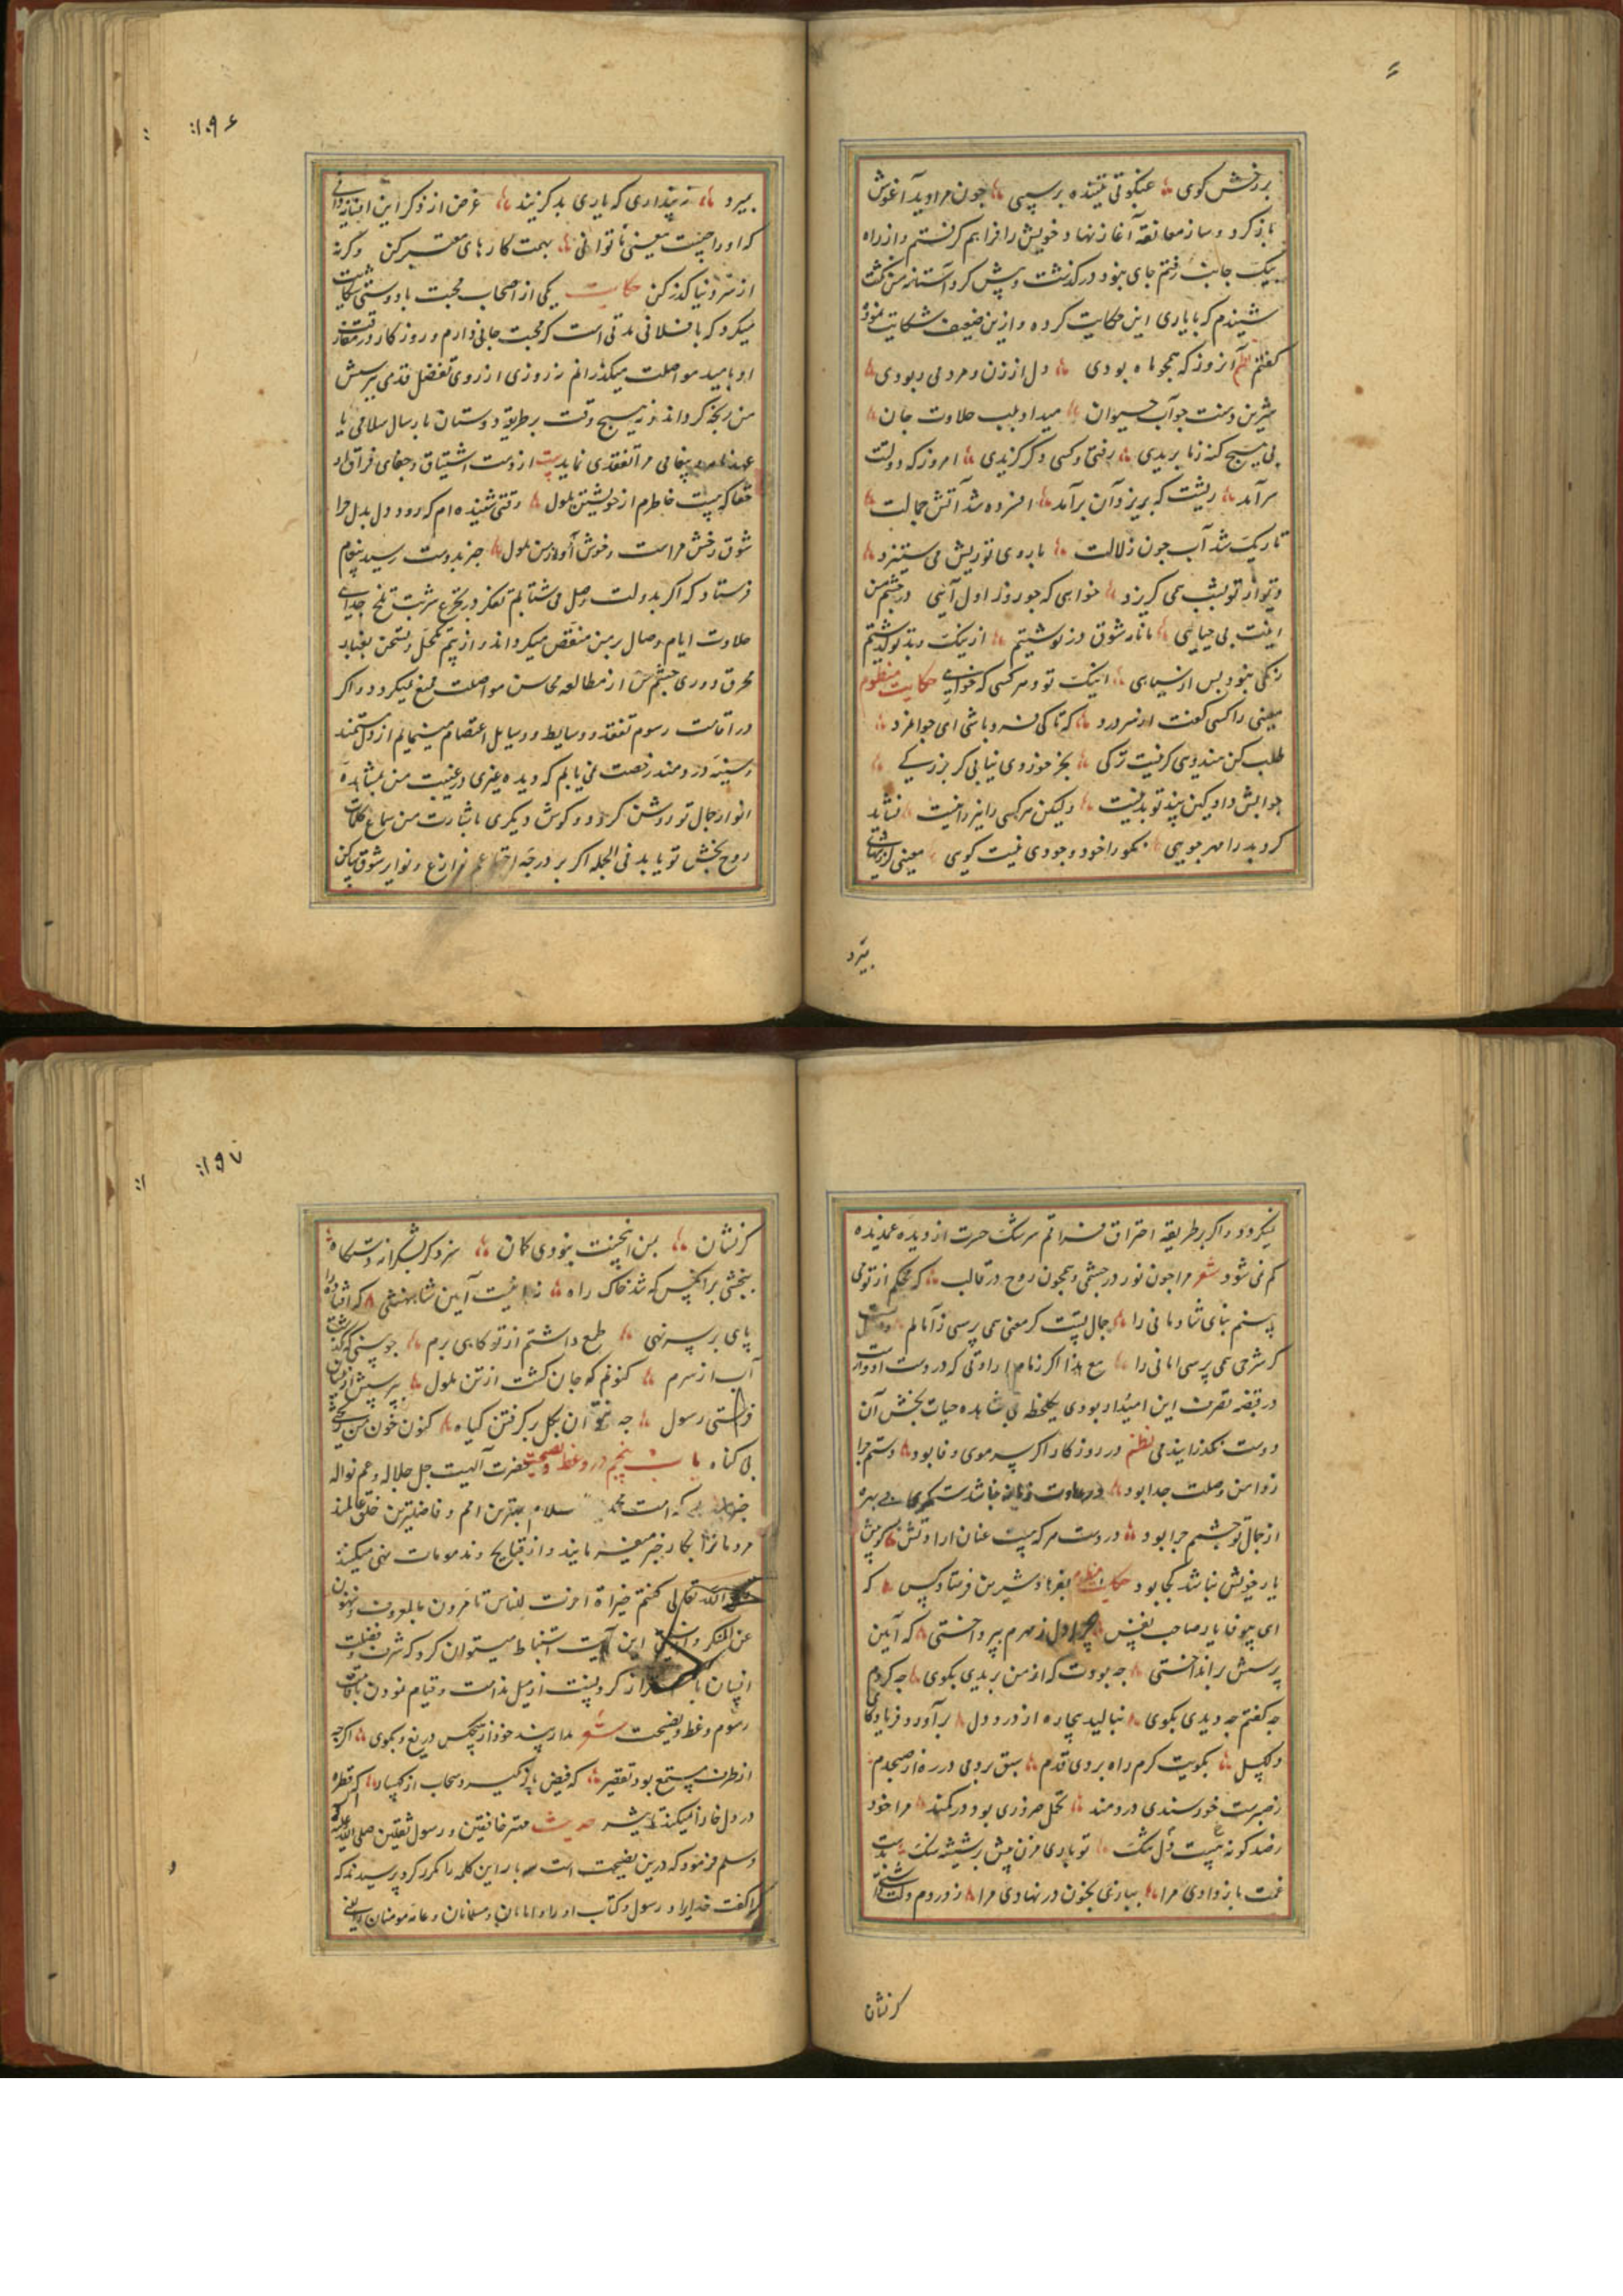 بر رخش گوی عنکبوتی تنیده بر سپی چون مرا دید آغوش
باز کرد و ساز معانقه آغاز نهاد خویش را فراهم گرفتم و از راه
بیک جانب رفتم جای نبود در گذشت و پیش کرد آستانه من گفت
شنیدم که با یاری این حکایت کرده و ازین ضعیف شکایت نموده
گفتم نظم آنروز که همچو ماه بودی دل از زن و مرد می ربودی
شیرین دهنت چو آب حیوان میداد بلب حلاوت جان
بی هیچ گنه ز ما بریدی رفتی و کسی دگر گزیدی امروز که دولت
سر آمد ریشت که بریزد آن بر آمد افسرده شد آتش جمالت
تاریک شد آب چون زلالت با روی تو ریش می ستیزد
و تو بشب همی گریزد خواهی که چو روز اول آیی در چشم من
اینت بی حیایی ما نار شوق در نوشتیم از نیک و بد تو گذشتیم
زنگی نبود پس از سیاهی اینک تو و هر کسی که خواهی حکایت منظوم
معینی را کسی گفت از سر درد که تا کی فرد باشی ای جوانمرد
طلب کن هندوی گر نیست ترکی بجز خوردی نیابی گر بزرگی
جوابش داد کین پند تو بد نیست ولیکن هر کسی را نیز نیست نشاید
کرد بد را مهر جویی نکو را خود وجودی نیست گویی معینی گر بتنهایی
بمیرد
۱۹۶
بمیرد نه پنداری که یاری بد گزیند غرض از ذکر این
که او را چیست معینی تا توانی بهمت کارهای معتبر کن وگرنه
از سر دنیا گذر کن حکایت یکی از اصحاب محبت با دوستی شکایت
میکرد که با فلانی مدتی است که محبت جانی دارم و روزگار در مفارقت
او بامید مواصلت میگذرانم نه روزی از روی تفضل قدمی بپرسش
من رنجه گرداند و نه هیچ وقت بر طریق دوستان بارسال سلامی یا
پیغامی مرا تفقدی نماید بیت از دست اشتیاق و جفای فراق او
حقا که نیست خاطرم از خویشتن ملول وقتی شنیده ام که رود دل بدل چرا
شوق رخش مراست و خوش او از من ملول خبر بدوست رسید پیغام
فرستاد که اگر بدولت وصل می شتابم تفکر در تجرع شربت تلخ جدایی
حلاوت ایام وصال بر من منغص میگرداند و از بیم تکحل چشمم بغبار
محرق دوری چشم من از مطالعه محاسن مواصلت ممتع نمیگردد و اگر
در اقامت رسوم تفقد و وسایط و وسایل اعتصام مینمایم از دل مستمند
و سینه دردمند رخصت نمی یابم که دیده غیری در غیبت من بمشاهده
انوار جمال تو روشن گردد و گوش دیگری باشارت من سماع کلمات
روح بخش تو یابد فی الجمله اگر بر درجه نوازع و نوایر شوق ساکن
نمیگردد و اگر بر طریقه احتراق فراقم سرشک حسرت از دیده غمدیده
کم نمی شود شعر مرا چون نور در چشمی و همچون روح در قالب که محکم از تو می
بینم بنای شادمانی را جمال تست گر معنی همی پرسی ز آمالم
گر شرحی همی پرسی امانی را مع هذا اگر زمام ارادتی که در دست ارادت
در قبضه تصرف این امیدوار بودی یکلحظه بی مشاهده حیات بخش آن
دوست نگذرانیدمی نظم در روزگار اگر سر موی وفا بود دستم چرا
ز دامن وصلت جدا بود بی بهره
از جمال تو چشمم چرا بود در دست هر که هست عنان ارادتش پیش
یار خویش نباشد کجا بود حکایت منظوم بفرهاد شیرین فرستاد کس که
ای بیوفا یار صاحب نفس چرا دل ز مهرم بپرداختی که آیین
پرسش بر انداختی چه بودت که از من بریدی بگوی چه کردم
چه گفتم چه دیدی بگوی بنالید بیچاره از درد دل بر آورد فریاد کای
دلگسل بکویت گرم راه بودی قدم سبق بردمی در ره از صبحدم
ز صبرست خورسندی دردمند تحمل ضروری بود در کمند مرا خود
ز صد گونه غم هست دل تنگ تو باری مزن بیش بر شیشه سنگ
غمت بازدادی مرا ببازی بخون در نهادی مرا ز دردم دلت
کرنشان
۱۹۷
کرنشان بمن اینچنینت نبودی گمان سزد گر بشکرانه دستگاه
ببخشی بر آنکس که شد خاک راه نه اینست آیین شاهنشهی که افتاده را
پای بر سر نهی طمع داشتم از تو کابی برم
آب از سرم کنونم که جان گشت از تن ملول بپرسش
فرستی رسول چه توان بگل بر گرفتن گیاه کنون خون من ریختی
بی گناه باب پنجم در وعظ و نصیحت حضرت الهیت جل جلاله و عم نواله
که امت محمد سلام بهترین امم و فاضلترین خلق عالمند
مردمانرا بکار خیر میفرمایند و از قبایح و مذمومات نهی میکنند
قال الله تعالی کنتم خیر امة اخرجت للناس تأمرون بالمعروف و تنهون
عن المنکر و این آیت استنباط میتوان کرد که شرف و فضیلت
انسان با کردنست از میل ندامت و قیام نمودن باقامت
رسوم وعظ و نصیحت شعر مدار پند خود از هیچکس دریغ و بگوی اگر چه
از طرف مستمع بود تقصیر که فیض باز نگیرد سحاب از کهسار که قطره
در دل خارا نمیکند تأثیر حدیث مهتر خافقین و رسول ثقلین صلی الله علیه
وسلم فرمود که دین نصیحت است سه بار این کلمه را مکرر کرد پرسیدند که
کرا گفت خدایرا و رسول و کتاب او را و امامان و مسلمانان و عامه مومنان یعنی